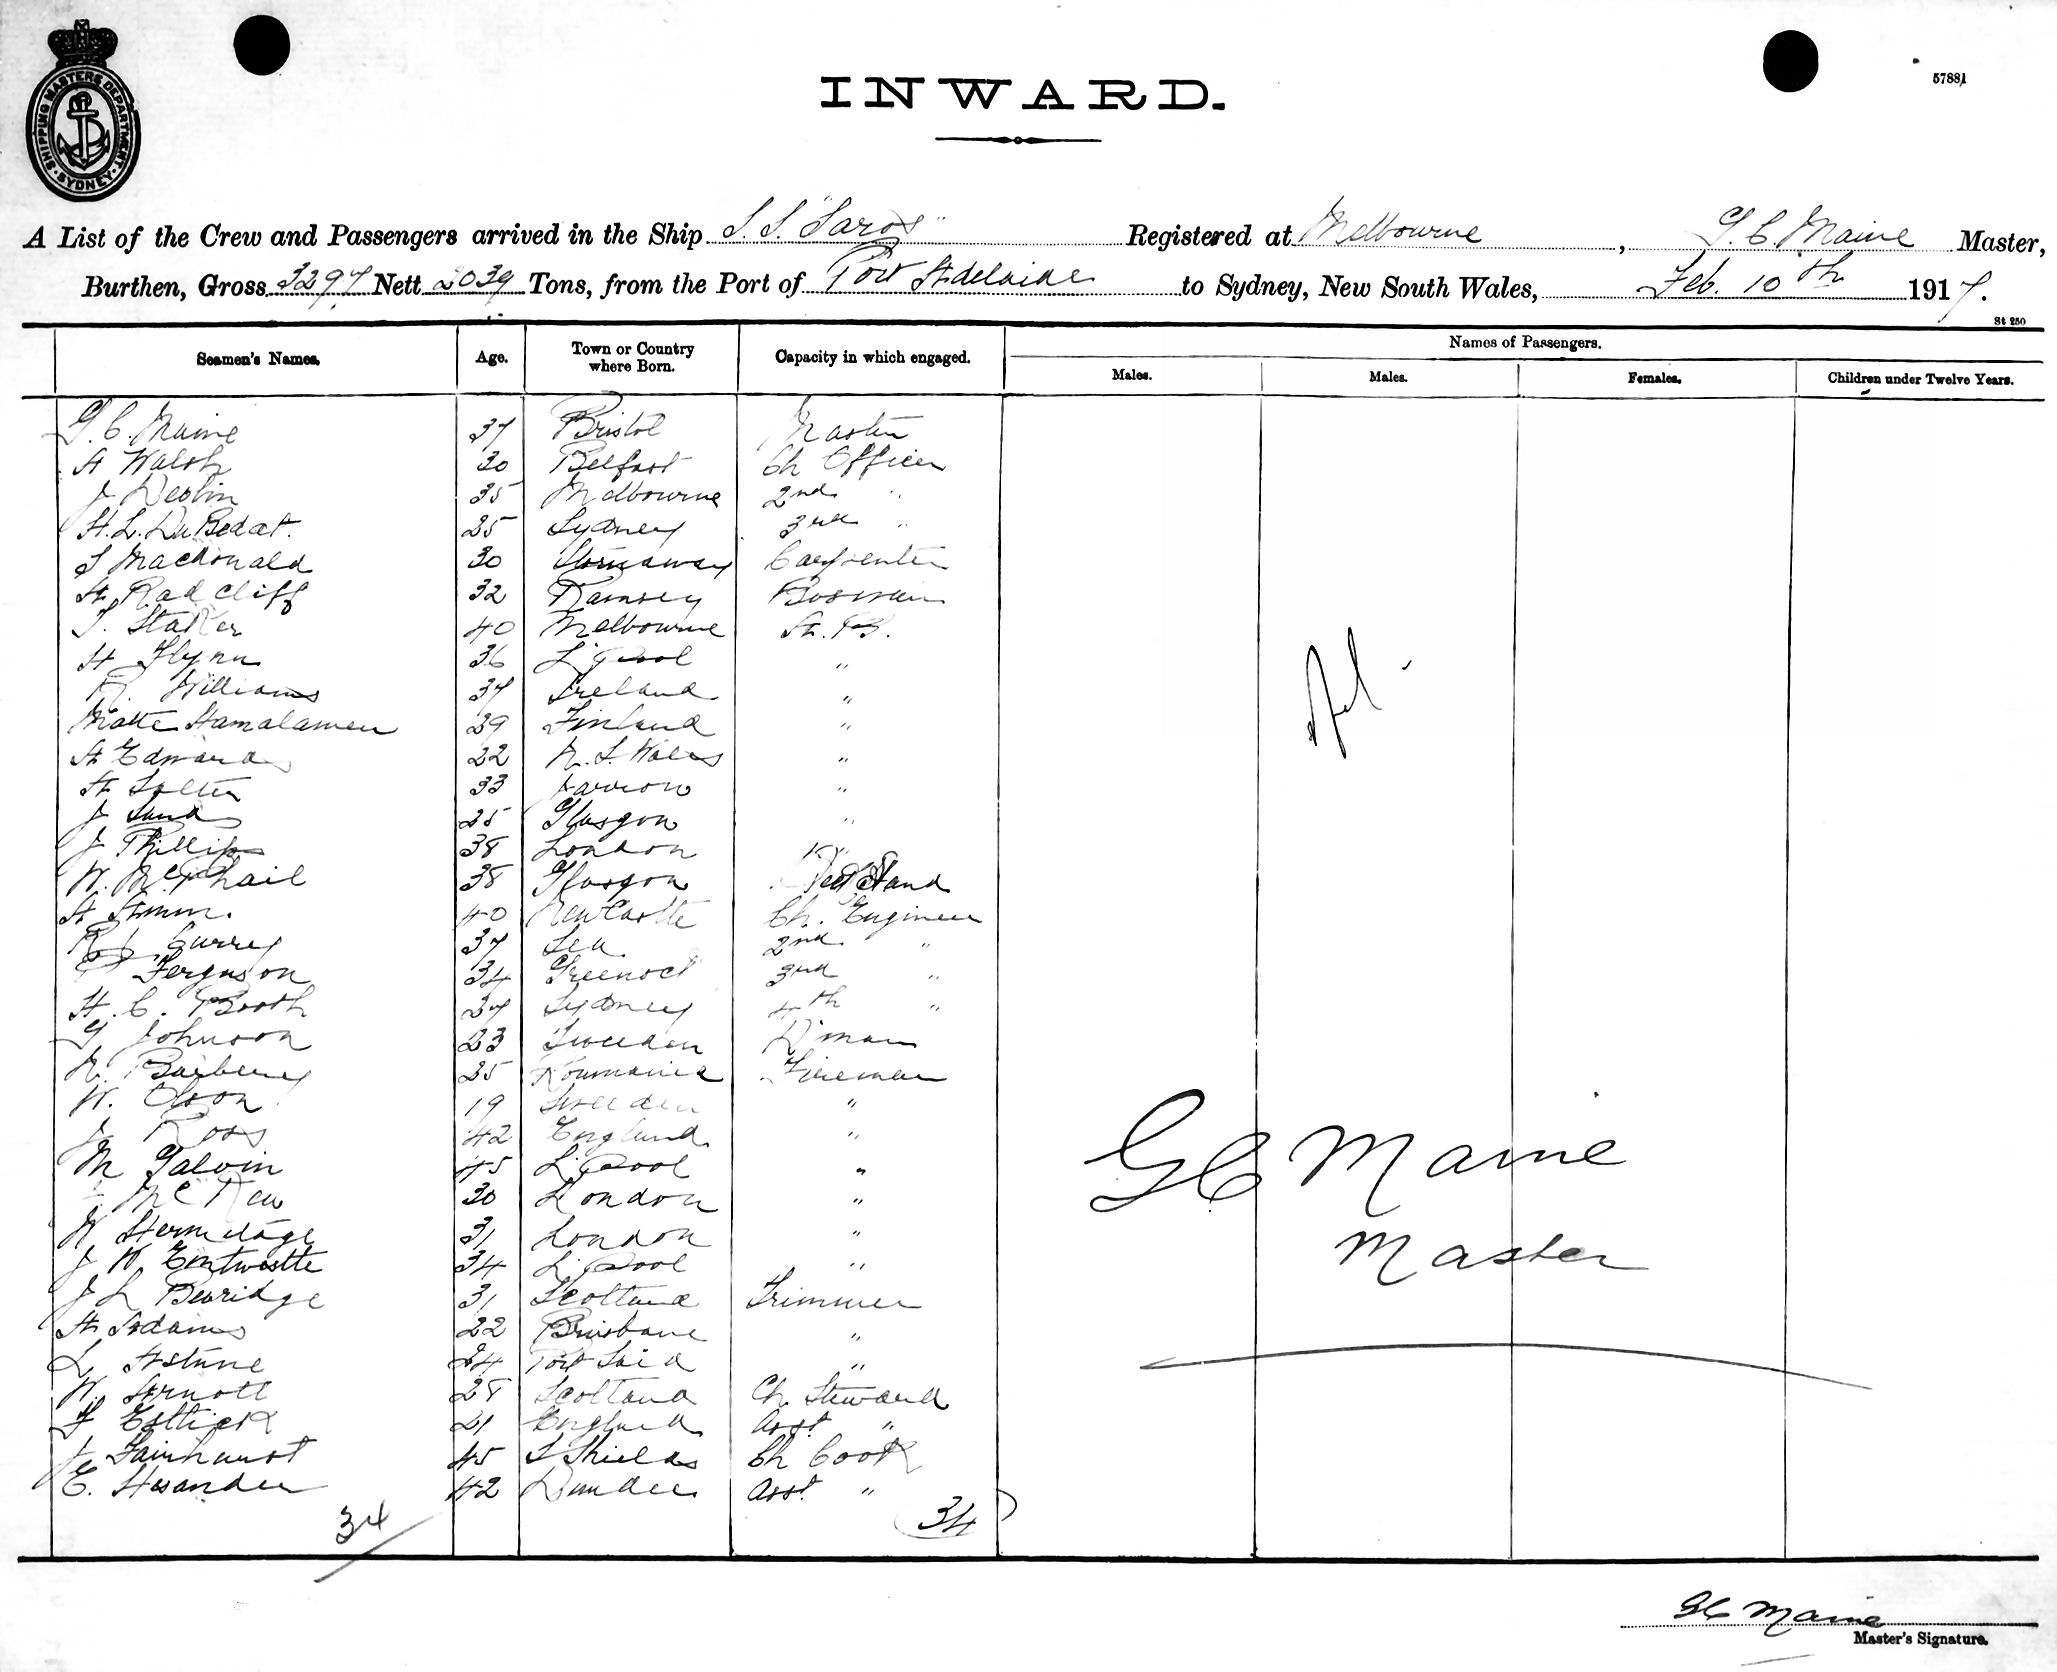 SHIPPING MASTERS DEPARTMENT · SYDNEY ·
57881
INWARD.
A List of the Crew and Passengers arrived in the Ship S.S. "Saros" Registered at Melbourne, G. C. Maine Master,
Burthen, Gross 3297 Nett 2039 Tons, from the Port of Port Adelaide to Sydney, New South Wales, Feb. 10th 1917.
St 250
Seamen's Names. Age. Town or Country where Born. Capacity in which engaged. Names of Passengers.
Males. Males. Females. Children under Twelve Years.
G. C. Maine 37 Bristol Master
A Walsh 30 Belfast Ch Officer
J Devlin 35 Melbourne 2nd "
H. L. Du Bedat. 25 Sydney 3rd "
S Macdonald 30 Stornaway Carpenter
H. Radcliff 32 Ramsey Boswain
T. Staker 40 Melbourne A. B.
H Flynn 36 L'Pool "
R. Williams 37 Ireland "
Matte Hamalainen 29 Finland "
A Edwards 22 N. S. Wales "
A 33 Jarrow "
J Sands 25 Glasgow "
J Phillips 38 London "
W. McPhail 38 Glasgow Deck Hand
A 40 NewCastle Ch. Engineer
R J Curry 37 Sea 2nd "
Ferguson 34 Greenock 3rd "
H. C. Booth 27 Sydney 4th "
G Johnson 23 Sweden D'man
N. 25 Roumania Fireman
W. Olson 19 Sweden "
J Ross 42 England "
M Galvin 45 L'Pool "
McKew 30 London "
W Hermitage 31 London "
J W. Entwistle 34 L'Pool "
J L Bevridge 31 Scotland Trimmer
A Adams 22 Brisbane "
L 24 Port Said "
W. Arnott 28 Scotland Ch. Steward
F 21 England Asst "
J Fairhurst 45 S Shields Ch Cook
E. 42 Dundee Asst. "
34 34
Nil.
G C Maine
Master
G C Maine
Master's Signature.